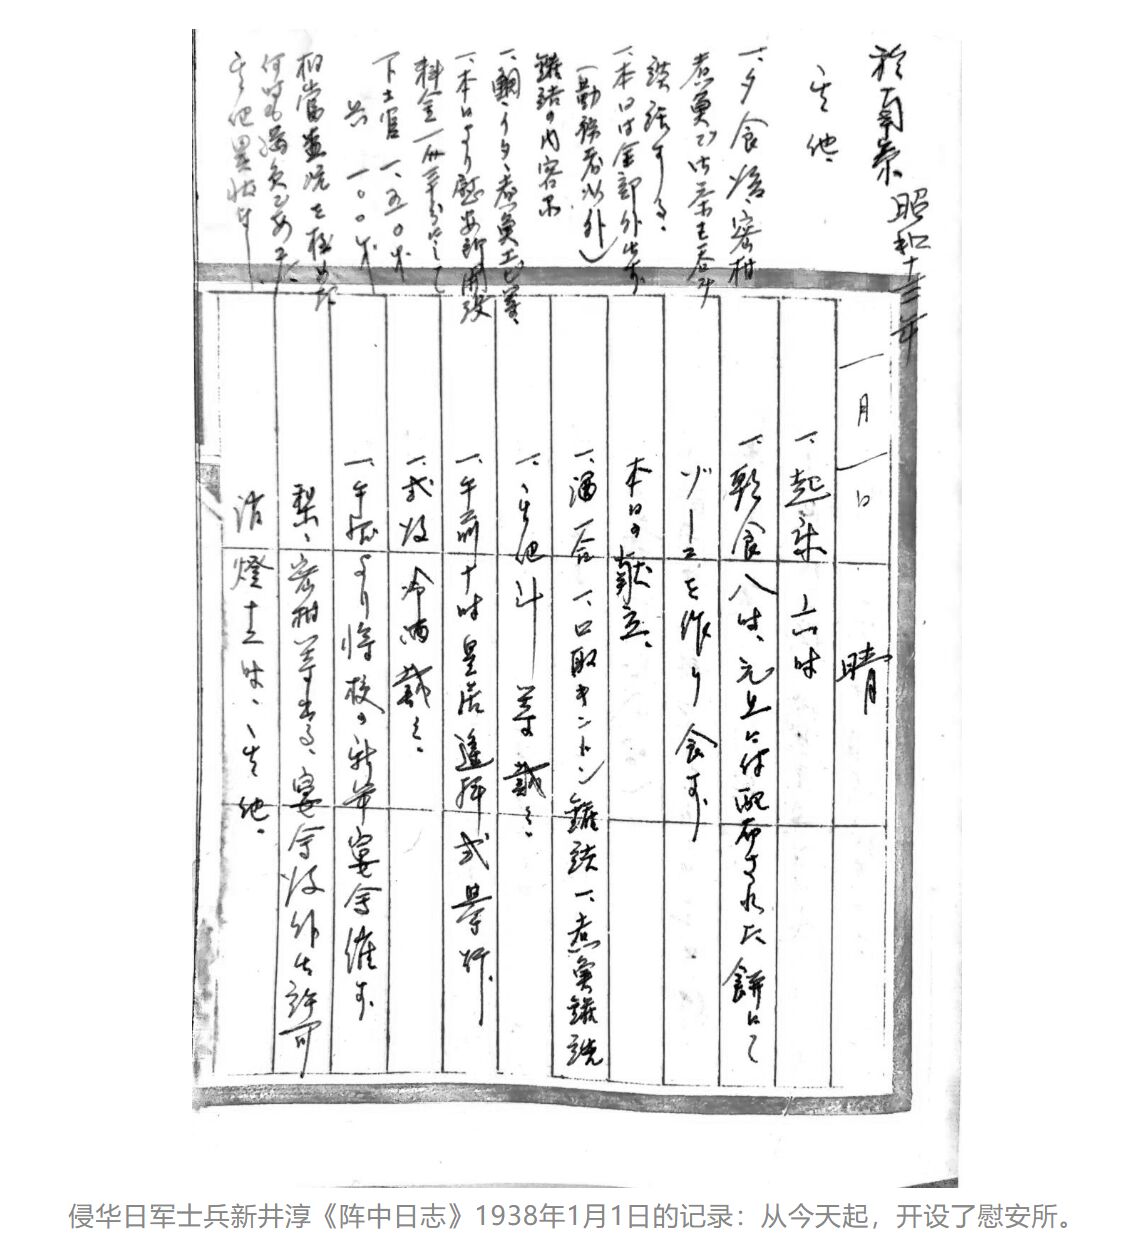 於南京 昭和十三年
其他、
一、夕食後、密柑
煮魚でお茶を呑み
談話する。
一、本日は全部外出す
（勤務者以外）
鑵詰の内容不
一、本日より慰安所開設
料金一人三十分にして
下士官 一、五〇米
兵 一、〇〇米
相当盛況を極めた
何時も満員であった、
其他異状なし
一月一日 晴
一、起床 六時
一、朝食八時、元旦に付配布された餅にて
ゾーニを作り食す、
本日の献立、
一、酒一合 一、口取キントン鑵詰 一、煮魚鑵詰
一、其他 等戴く、
一、午前十時皇居遥拝式挙行、
一、式後冷酒戴く、
一、午後より将校の新年宴会催す
梨、密柑等出る、宴会後外出許可
消燈十二時、其他、
侵华日军士兵新井淳《阵中日志》1938年1月1日的记录：从今天起，开设了慰安所。